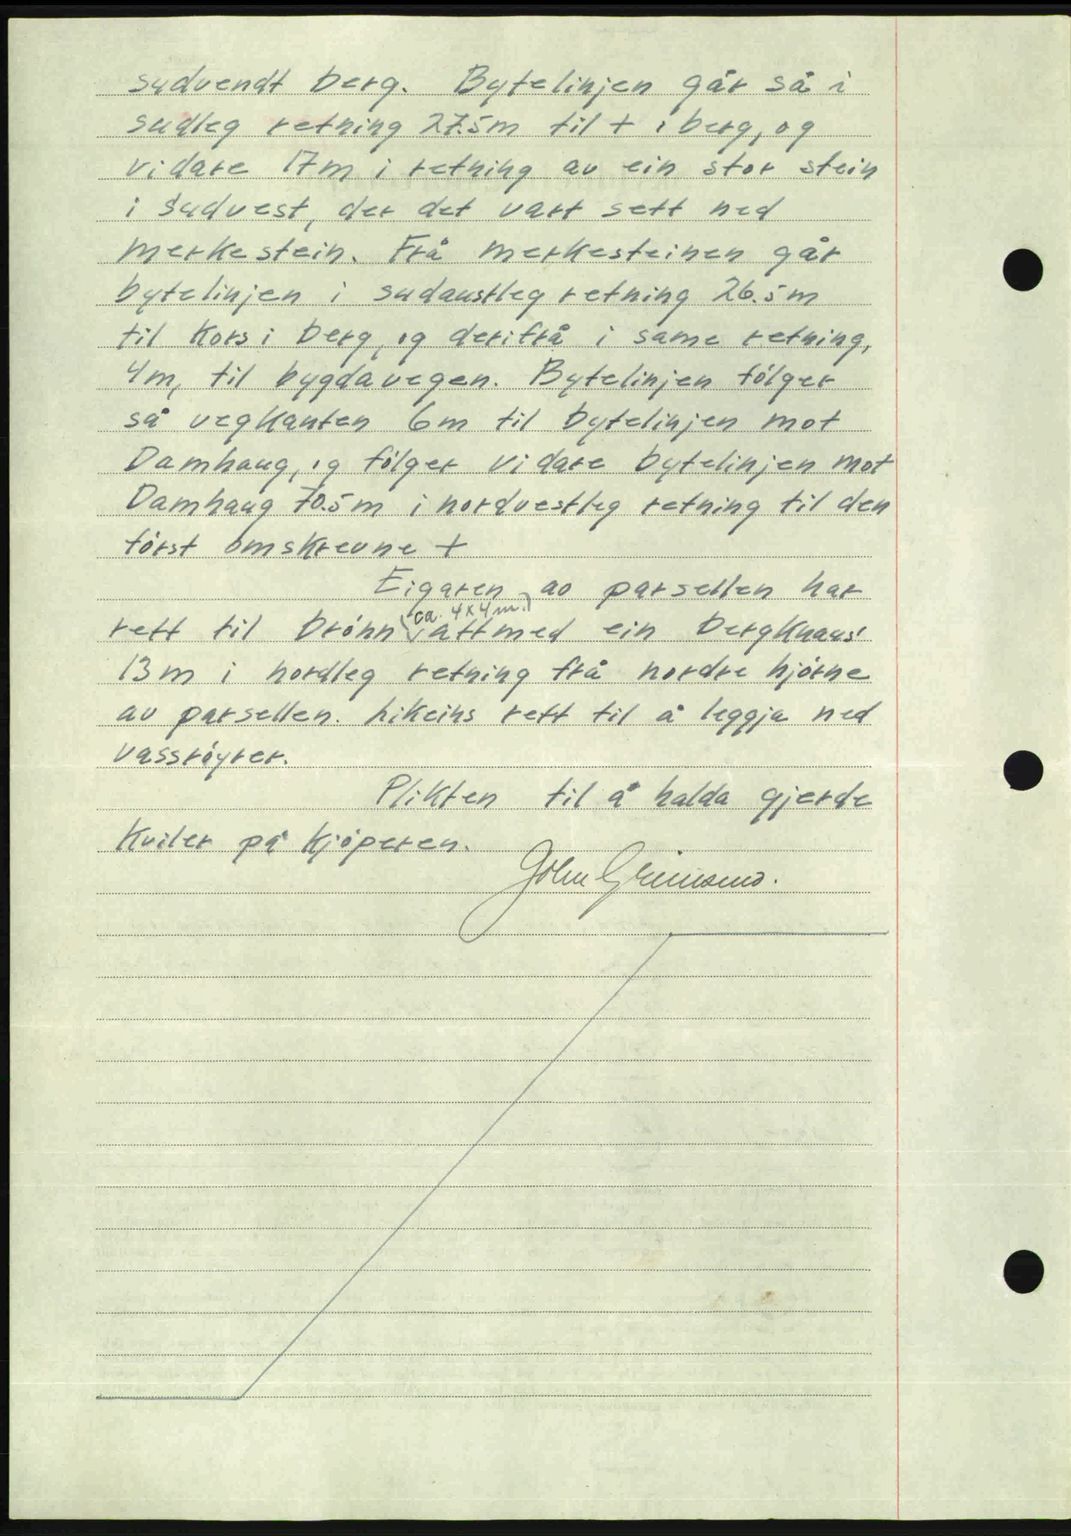 sydvendt berg. Bytelinjen går så i
sudleg retning 27.5m til + i berg, og
vidare 17m i retning av ein stor stein
i sudvest, der det vart sett ned
merkestein. Frå merkesteinen går
bytelinjen i sudaustleg retning 26.5m
til kors i berg, og derifrå i same retning,
4m, til bygdavegen. Bytelinjen fölger
så vegkanten 6m til bytelinjen mot
Damhaug, og fölger vidare bytelinjen mot
Damhaug 70.5m i nordvestleg retning til den
först omskrevne +
Eigaren av parsellen har
rett til brönn (ca. 4x4m.) attmed ein bergknaus
13m i nordleg retning frå nordre hjörne
av parsellen. Likeins rett til å leggja ned
vassröyrer.
Plikten til å halda gjerde
kviler på kjöperen.
John Grimsmo.